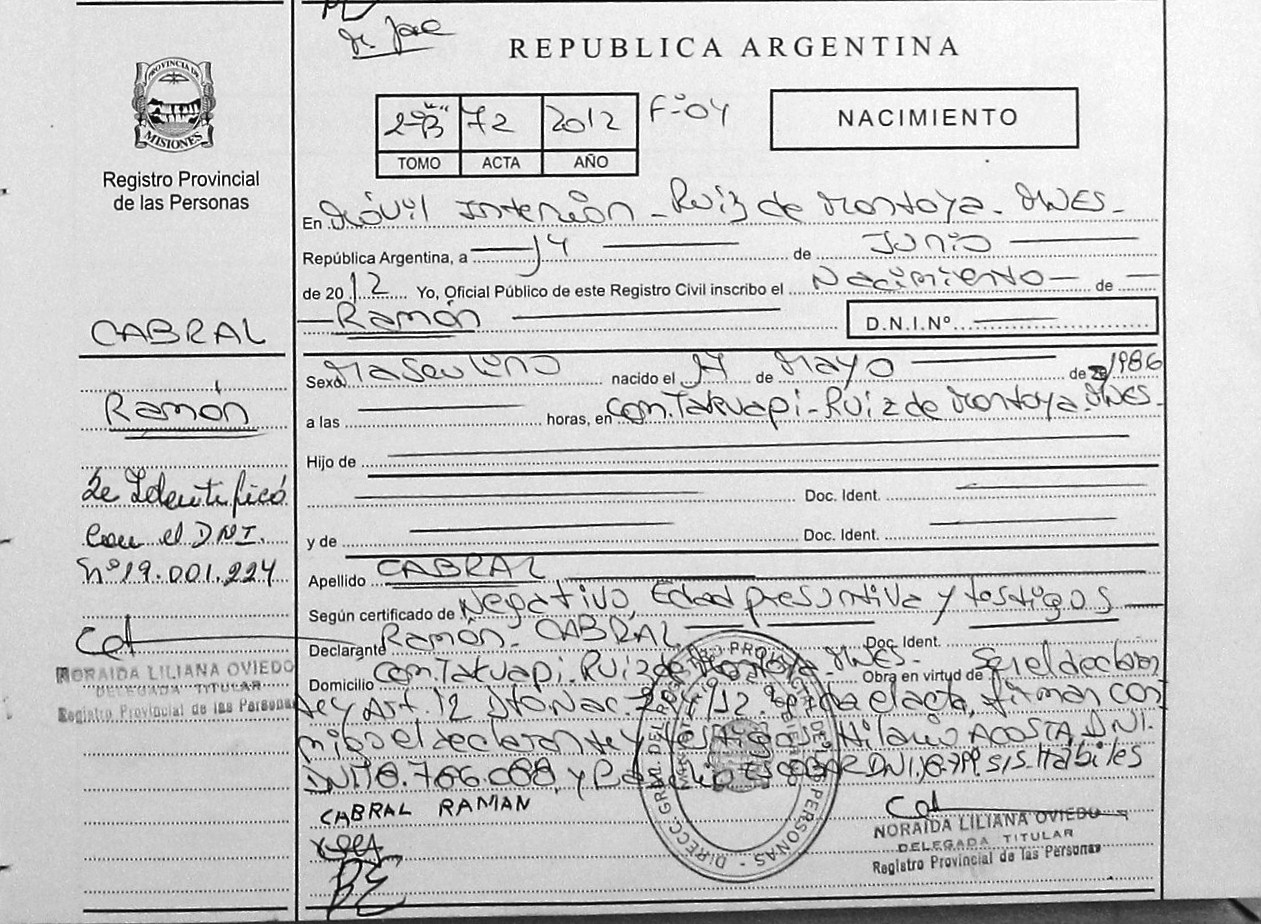 de Jae
REPUBLICA ARGENTINA
PROVINCIA DE
MISIONES
Registro Provincial
de las Personas
2-"B" 72 2012 Fº04
TOMO ACTA AÑO
NACIMIENTO
En Móvil Interior - Ruiz de Montoya - MNES -
República Argentina, a 14 de Junio
de 2012 Yo, Oficial Público de este Registro Civil inscribo el Nacimiento de
Ramón D.N.I.Nº
CABRAL
Ramón
Se Identificó
con el DNI.
Nº 19.001.224
NORAIDA LILIANA OVIEDO
DELEGADA TITULAR
Registro Provincial de las Personas
Sexo Masculino nacido el 17 de Mayo de 1986
a las horas, en Com. Takuapi - Ruiz de Montoya. MNES -
Hijo de
Doc. Ident.
y de Doc. Ident.
Apellido CABRAL
Según certificado de Negativo, Edad presuntiva y testigos
Declarante Ramón CABRAL Doc. Ident.
Domicilio Com. Takuapi - Ruiz de Montoya. MNES - Obra en virtud de Ser el declaran
te y Art. 12 Dto Nac. el acta, firman con
migo el declarante y testigos: Hilario ACOSTA, DNI.
DNI 18.766.088, y ESCOBAR DNI. Hábiles
CABRAL RAMAN
NORAIDA LILIANA OVIEDO
DELEGADA TITULAR
Registro Provincial de las Personas